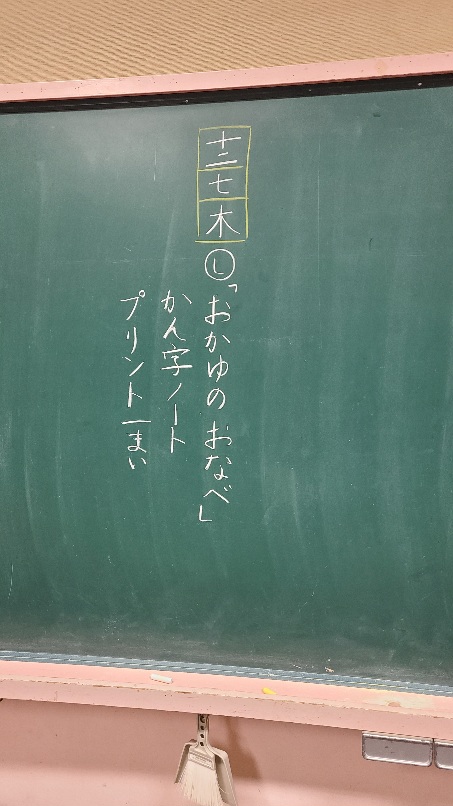 十二
七
木
Ⓛ「おかゆの おなべ」
かん字ノート
プリント一まい